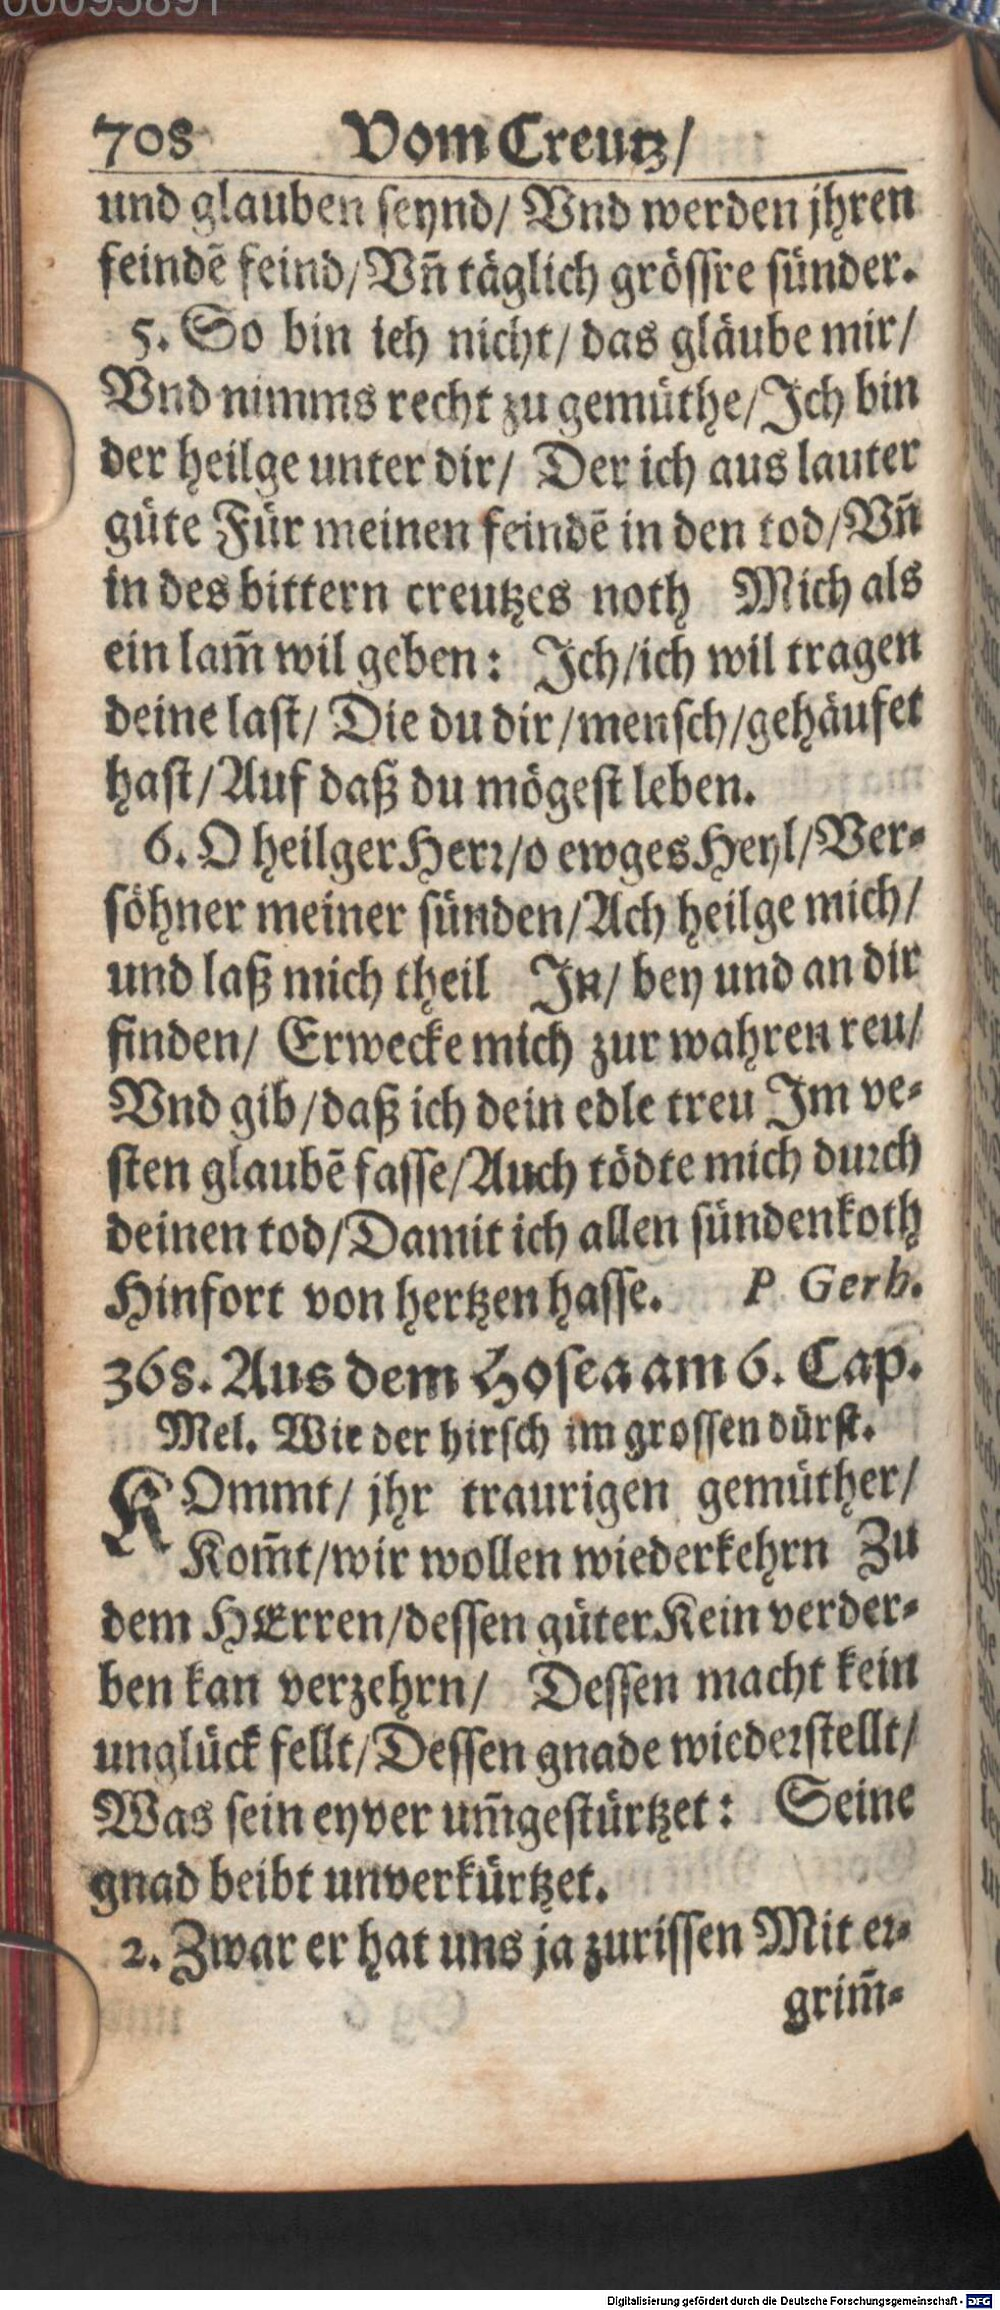 00095891
708 Vom Creutz/
und glauben seynd/ Vnd werden jhren
feindẽ feind/Vñ täglich grössre sünder.
5. So bin ich nicht/ das gläube mir/
Vnd nimms recht zu gemüthe/Ich bin
der heilge unter dir/ Der ich aus lauter
güte Für meinen feindẽ in den tod/Vñ
in des bittern creutzes noth Mich als
ein lam̃ wil geben: Ich/ich wil tragen
deine last/ Die du dir/mensch/gehäufet
hast/Auf daß du mögest leben.
6. O heilger Herr/o ewges Heyl/Ver-
söhner meiner sünden/Ach heilge mich/
und laß mich theil In/ bey und an dir
finden/ Erwecke mich zur wahren reu/
Vnd gib/daß ich dein edle treu Im ve-
sten glaubẽ fasse/Auch tödte mich durch
deinen tod/Damit ich allen sündenkoth
Hinfort von hertzen hasse. P Gerh.
368. Aus dem Hosea am 6. Cap.
Mel. Wie der hirsch im grossen dürst.
KOmmt/ jhr traurigen gemüther/
Kom̃t/wir wollen wiederkehrn Zu
dem HErren/dessen güter Kein verder-
ben kan verzehrn/ Dessen macht kein
unglück fellt/Dessen gnade wiederstellt/
Was sein eyver um̃gestürtzet: Seine
gnad beibt unverkürtzet.
2. Zwar er hat uns ja zurissen Mit er-
grim̃-
Digitalisierung gefördert durch die Deutsche Forschungsgemeinschaft - DFG